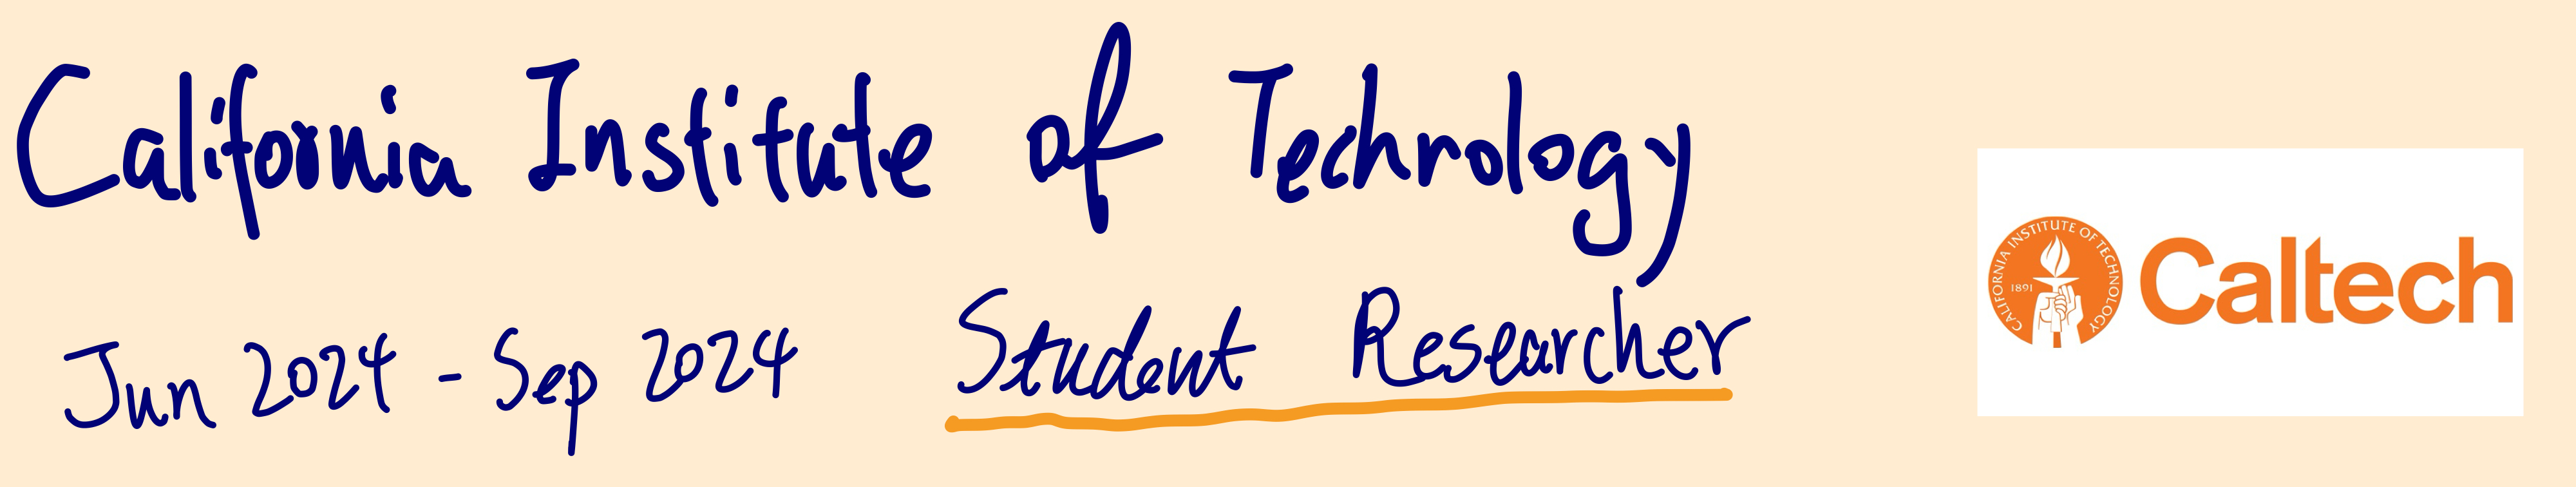 California Institute of Technology
Jun 2024 - Sep 2024 Student Researcher
CALIFORNIA INSTITUTE OF TECHNOLOGY
1891
Caltech